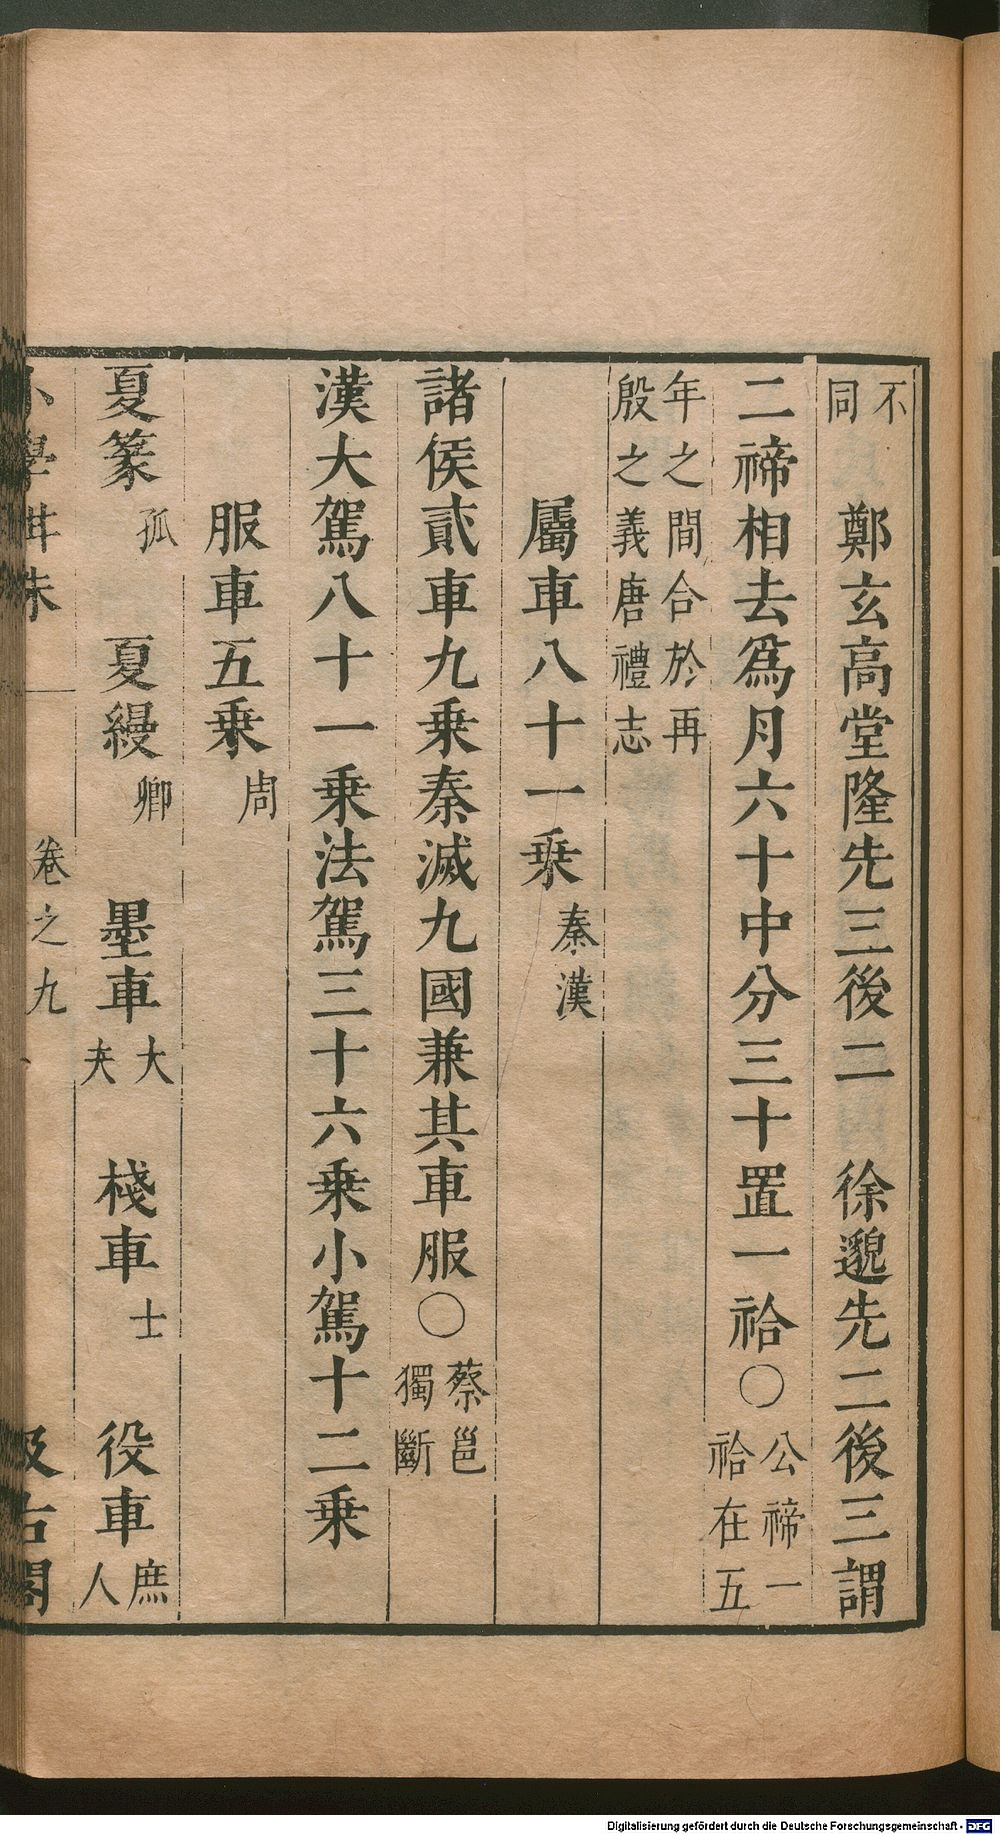 不同　鄭玄高堂隆先三後二　徐邈先二後三謂
二禘相去爲月六十中分三十置一祫○公禘一祫在五
年之間合於再殷之義唐禮志
屬車八十一乗秦漢
諸侯貳車九乗秦滅九國兼其車服○蔡邕獨斷
漢大駕八十一乗法駕三十六乗小駕十二乗
服車五乗周
夏篆孤　夏縵卿　墨車大夫　棧車士　役車庶人
小學紺珠　卷之九　汲古閣
Digitalisierung gefördert durch die Deutsche Forschungsgemeinschaft - DFG